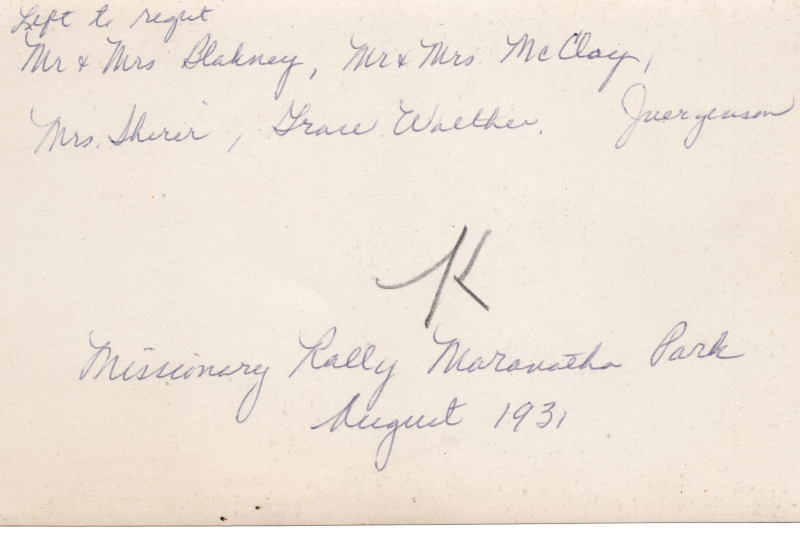 Left to right
Mr & Mrs Blakney, Mr & Mrs McClay,
Mrs. Shirer, Grace Walther. Juergenson
K
Missionary Rally Maranatha Park
August 1931